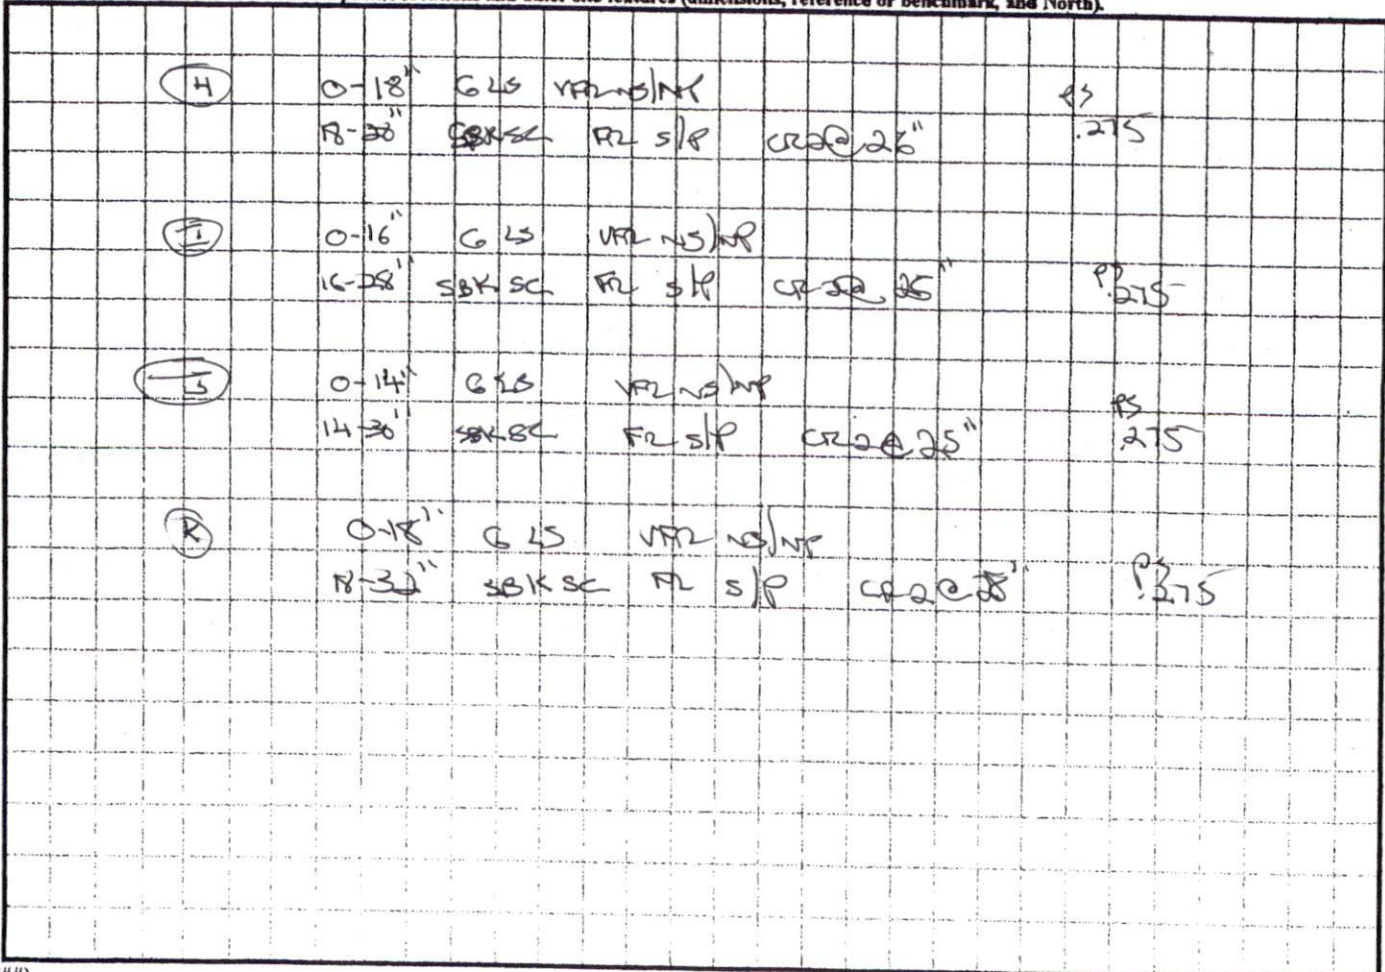 other site features (dimensions, reference or benchmark, and North).
H 0-18" G LS VFR NS/NP PS
SBK SC FR S/P CR2@ 26" .275
I 0-16" G LS VFR NS/NP
16-28" SBK SC FR S/P CR 2@ 25" PS .275
J 0-14" G LS VFR NS/NP PS
14-30" SBK SC FR S/P CR 2 @ 25" .275
K 0-18" G LS VFR NS/NP
18-32" SBK SC FR S/P CR 2 @ 28" PS .275